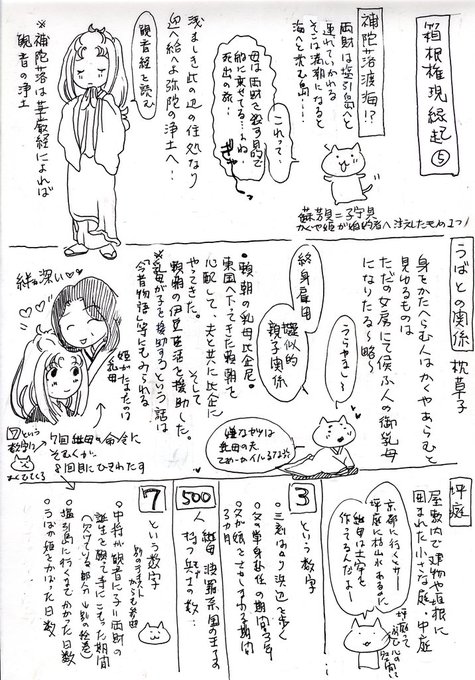 箱根権現縁起⑤
補陀落渡海!?
両財は塩引島へと
連れていかれる
そこは満潮になると
海へと沈む島…!
これって…
母は両財を殺す目的で
船に乗せてる…よね
死出の旅…
浅ましき此の辺の住処なり
迎へ給へよ弥陀の浄土へ…
観音経を読む
※補陀落は華厳経によれば
観音の浄土
蘇芳貝=子守貝
かぐや姫が婚約者へ注文したもの1つ!
うばとの関係
枕草子
身をかへたらむ人はかくやあらむと
見ゆるものは
ただの女房にて候ふ人の御乳母
になりたる〜略〜
うらやまし〜
終身雇用
疑似的
親子関係
・頼朝の乳母比企尼。
東国へ下ってきた頼朝を
心配して、夫と共に比企に
やってきた。そして
頼朝の伊豆生活を援助した。
※乳母が子を援助するという話は
「今昔物語」等にもみられる
絆深い
姫がたよったのは
乳母
7という
数字!?
7回継母の命令に
そむくが、
8回目にひきわたす
嫌なヤツは
乳母の夫
坪庭
屋敷内で建物や垣根に
囲まれた小さな庭 中庭
京都に行くと今でも
坪庭に枯山水あるよ
継母は土牢を
作ってるんだよ…
3という数字
・三刻ばかり浜辺を歩く
・父の単身赴任の期間3年
3カ月
500人
継母 波羅奈国の王子の
持つ兵士の数…
7という数字
・中将が観音に子ニ両財の
誕生を願って寺にこもった期間
(欠けている部分
・塩引島に行くまでかかった日数
・うばが姫をかばった日数